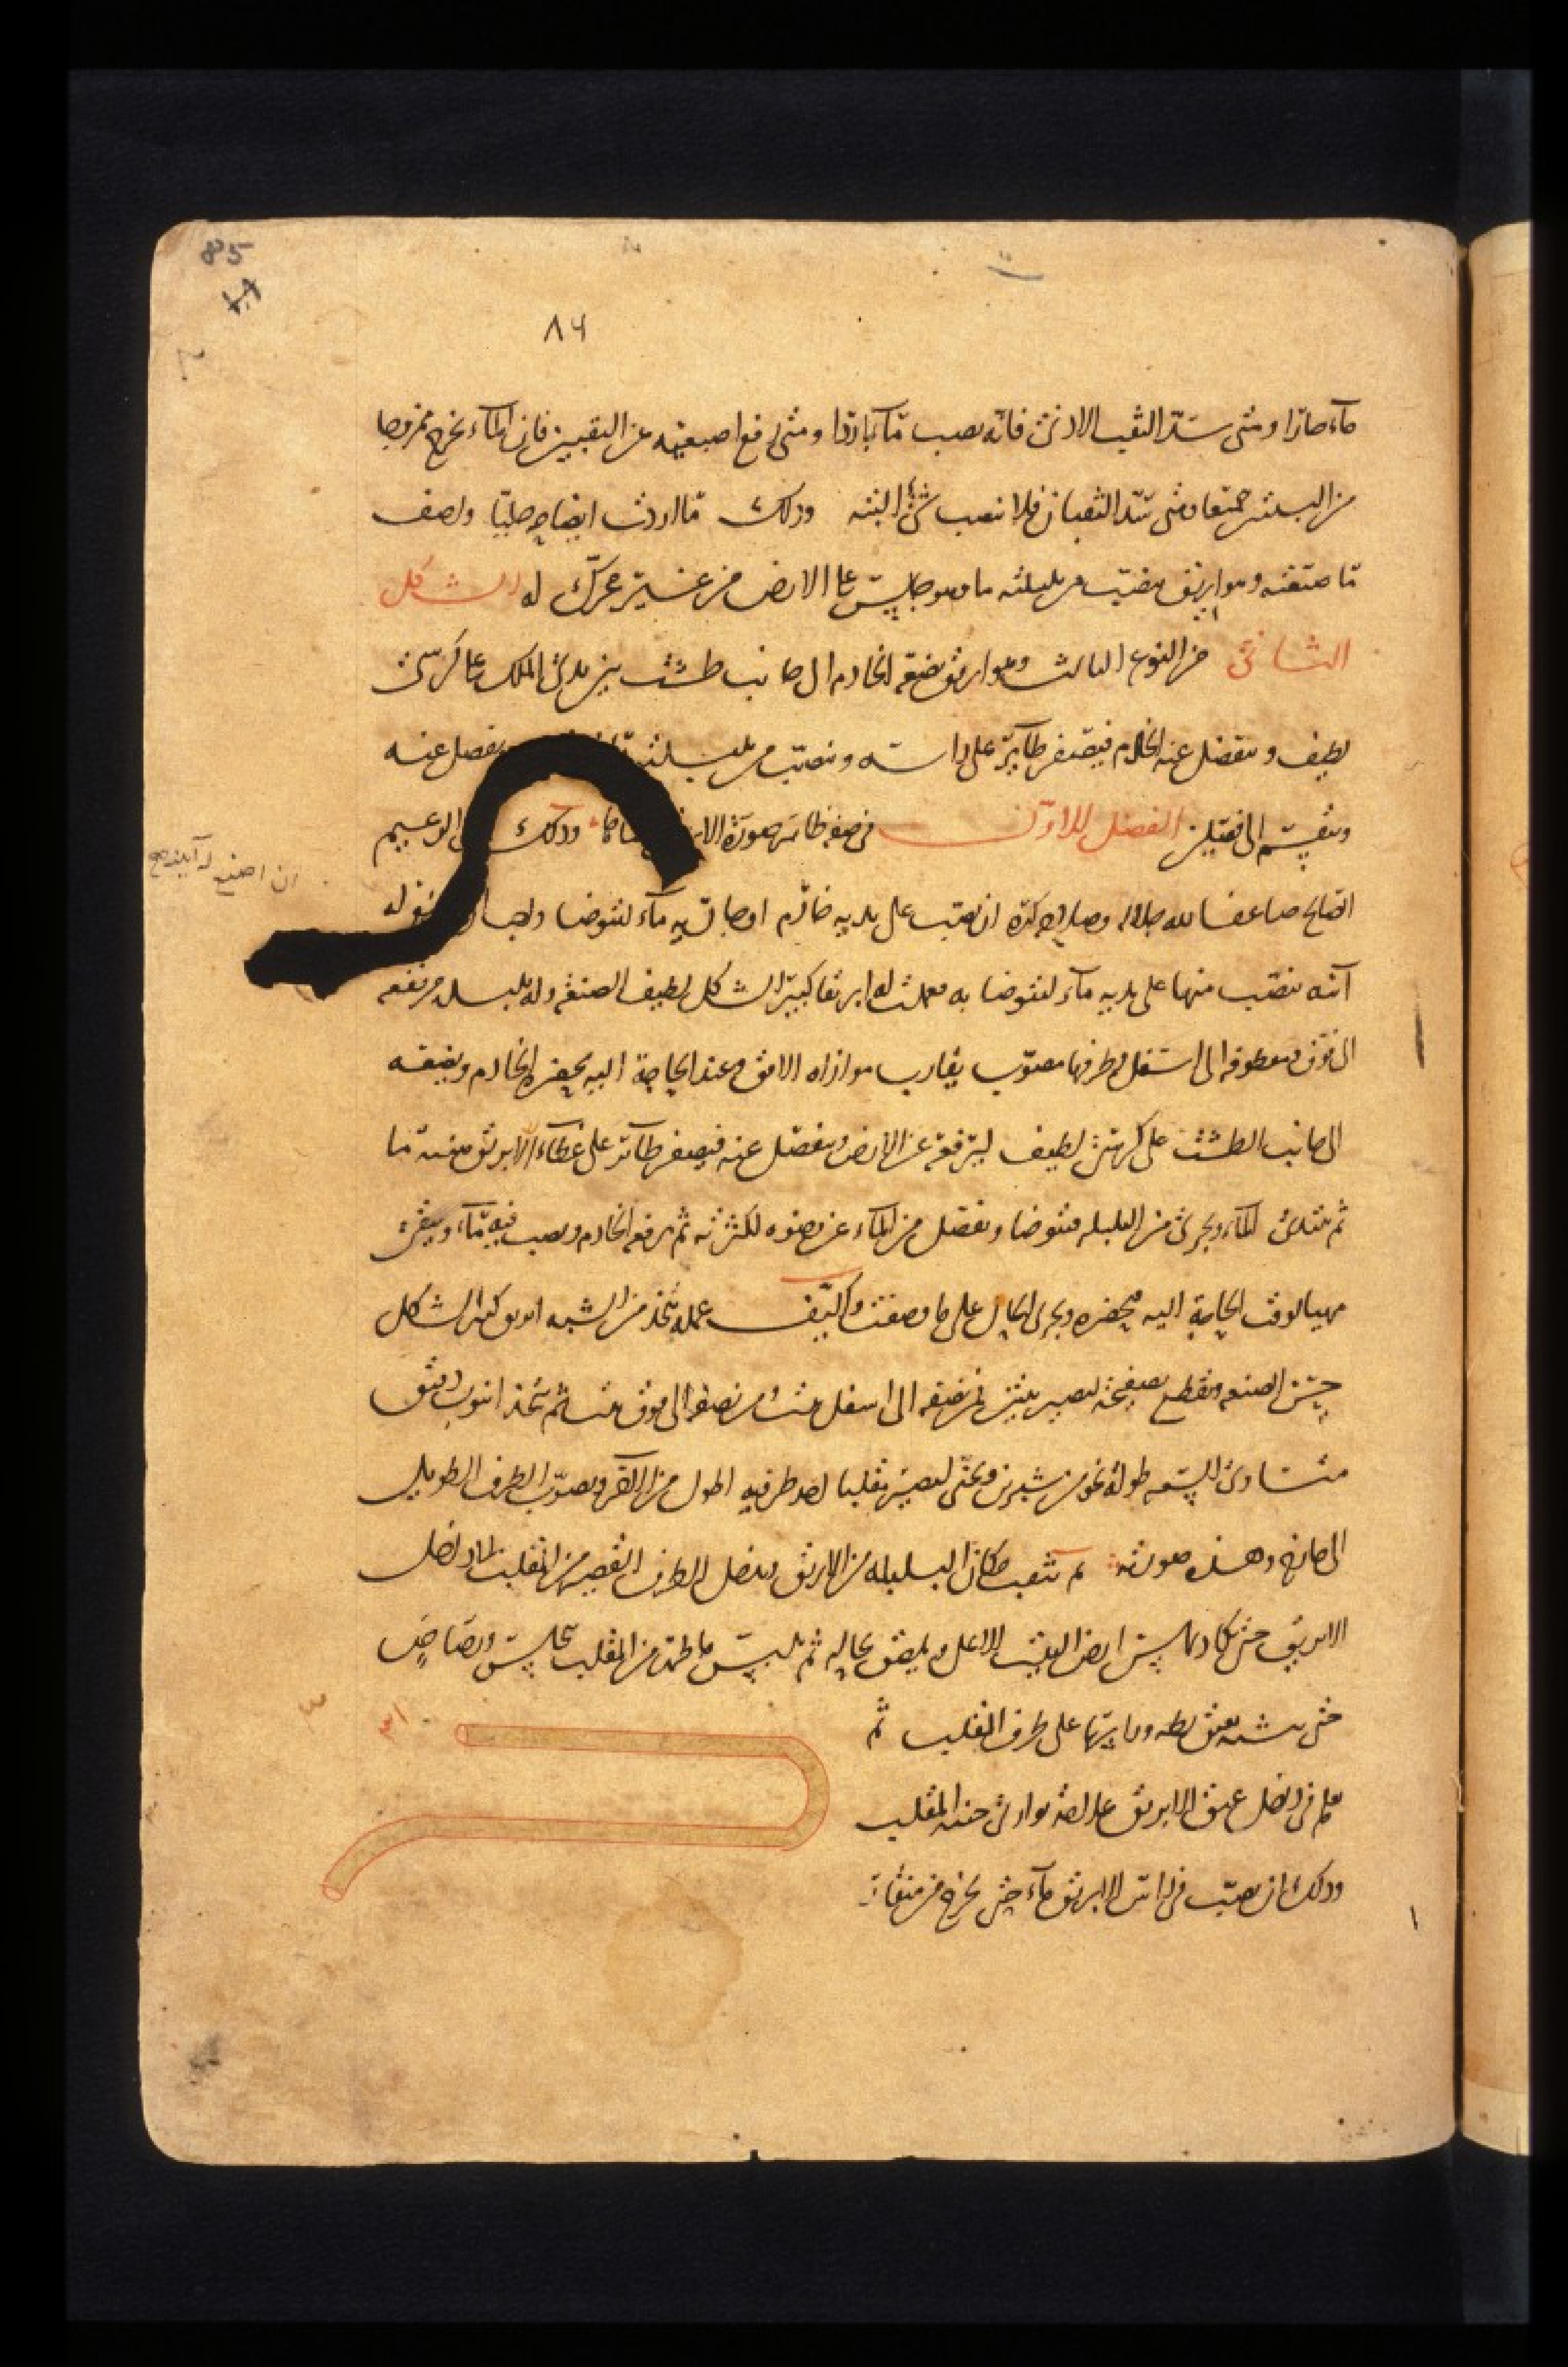 85
٨٤
ماء حارا ومتى سد الثقب الادنى فانه يصب ماء باردا ومتى رفع اصبعيه عن الثقبين فان الماء يخرج ممزوجا
من البلبلة جميعا ومتى سد الثقبان فلا تصب شئ البتة وذلك ما اردت ايضاحه جليا ولصف
ما صنعته وهو ابريق يصب من بلبلته ما وهو جالس على الارض من غير محرك له الشكل
الثانى من النوع الثالث وهو ابريق يضعه الخادم الى جانب طشت بين يدى الملك على كرسى
لطيف وينفصل عنه الخادم فيصفر طائر على راسه وينصب من بلبلته فصل عنه
وينقسم الى فصلين الفصل الاول فى صفة ظاهر صورة الا وذلك
الصالح ضاعف الله جلاله وصلاحه كره ان يصب على يديه خادم او جارية ماء ليتوضا
ان اصنع له
آنية ينصب منها على يديه ماء ليتوضا به فعملت له ابريقا كبير الشكل لطيف الصنعة وله بلبلة مرتفعة
الى فوق معطوفة الى اسفل وطرفها مصوب يقارب موازاة الافق وعند الحاجة اليه يحضره الخادم ويضعه
الى جانب الطشت على كرسى لطيف ليرفعه عن الارض وينفصل عنه فيصفر طائر على غطاء الابريق هنية ما
ثم يبتدئ الماء ويجرى من البلبلة فيتوضا ويفضل من الماء عن وضوه لكثرته ثم يرفعه الخادم ويصب فيه ماء ويبقى
مهيا لوقت الحاجة اليه فيحضره ويجرى الحال على ما وصفت وكيف عمله يتخذ من الشبه ابريق كبير الشكل
حسن الصنعة ويقطع بصفيحة ليصير بيتين من نصفه الى اسفل بيت ومن نصفه الى فوق بيت ثم يتخذ انبوب دقيق
متساوى السعة طوله نحو من شبرين ويحنى ليصير مقلبا احد طرفيه اطول من الاخر ويصوب الطرف الطويل
الى خارج وهذه صورته ثم يثقب مكان البلبلة من الابريق ويدخل الطرف القصير من المقلب الى داخل
الابريق حتى يكاد يماس ارض البيت الاعلى ويلصق بحاله ثم يلبس ما ظهر من المقلب نحاس ورصاص
حتى يشبه عنق بطة وراسها على طرف المقلب ثم
يعلم فى داخل عنق الابريق علامة توازى حنية المقلب
وذلك ان يصب فى راس الابريق ماء حتى يخرج من منقار